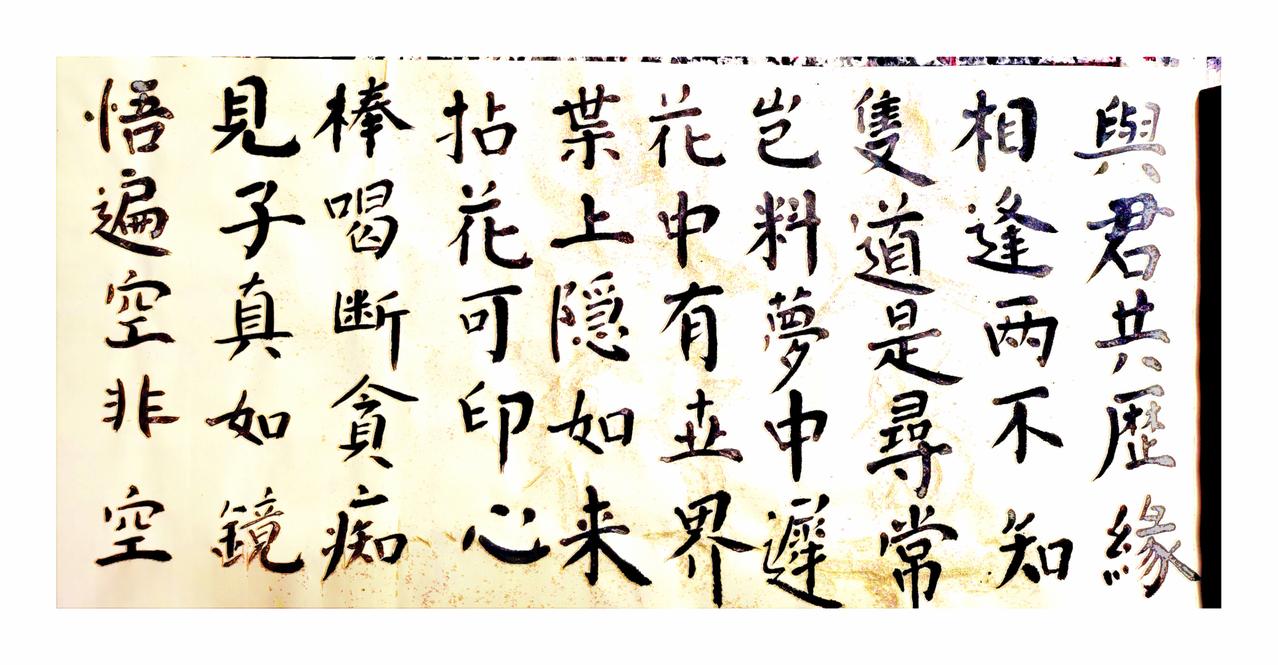 與君共歷緣
相逢两不知
隻道是尋常
岂料夢中遲
花中有世界
葉上隱如来
拈花可印心
棒喝断貪痴
見子真如鏡
悟遍空非空